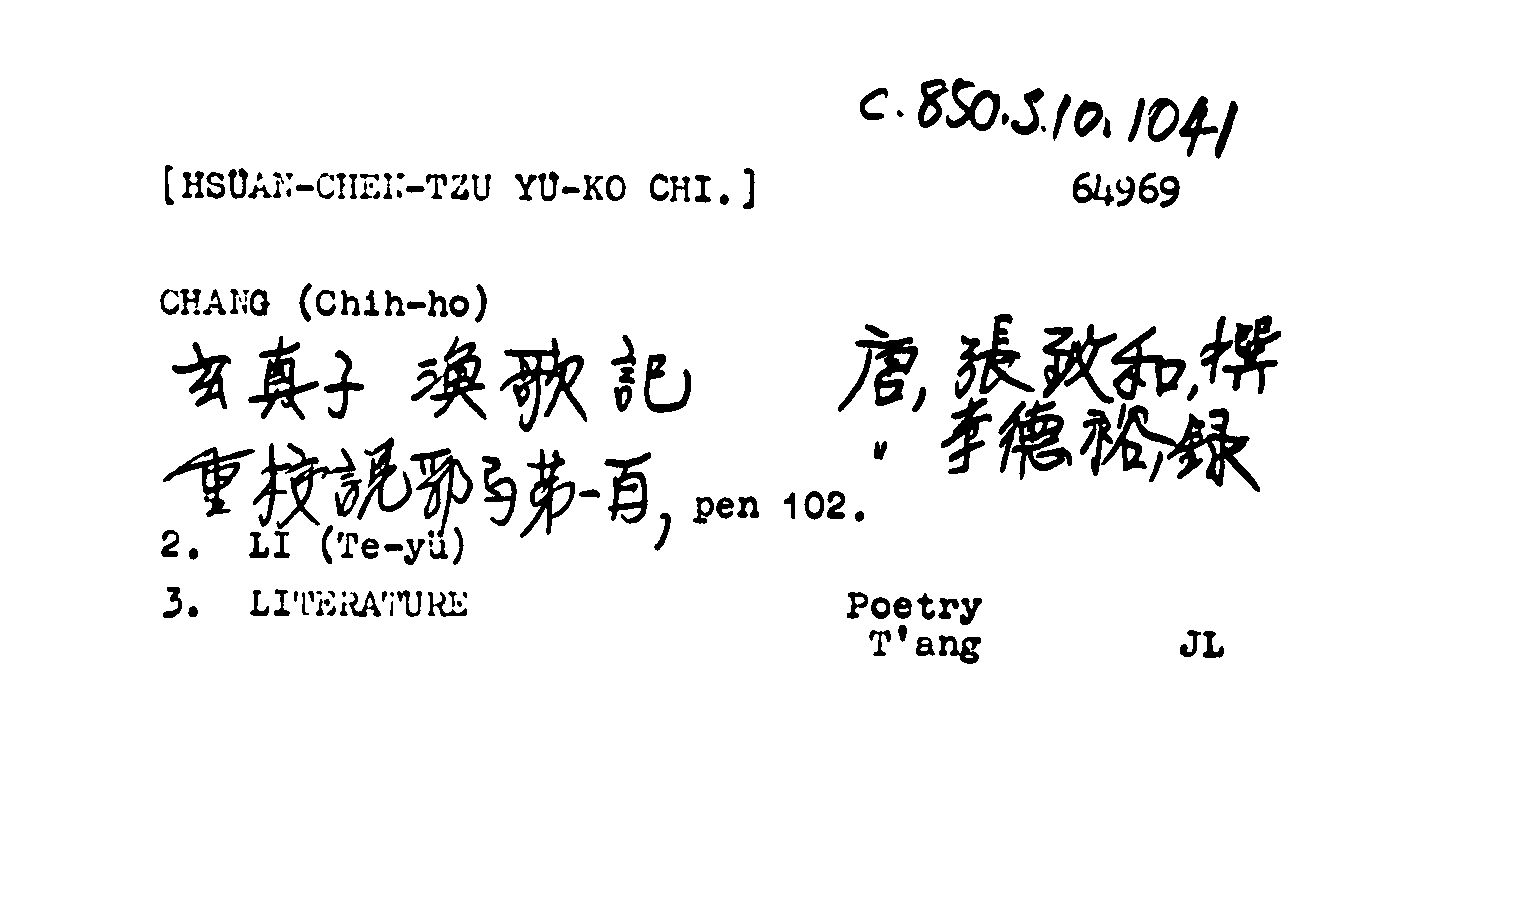 C.850.S.10.1041
[HSÜAN-CHEN-TZU YÜ-KO CHI.] 64969
CHANG (Chih-ho)
玄真子 漁歌記 唐, 張致和, 撰
〃 李德裕, 録
重校説郛弓第一百, pen 102.
2. LI (Te-yü)
3. LITERATURE Poetry
T'ang JL